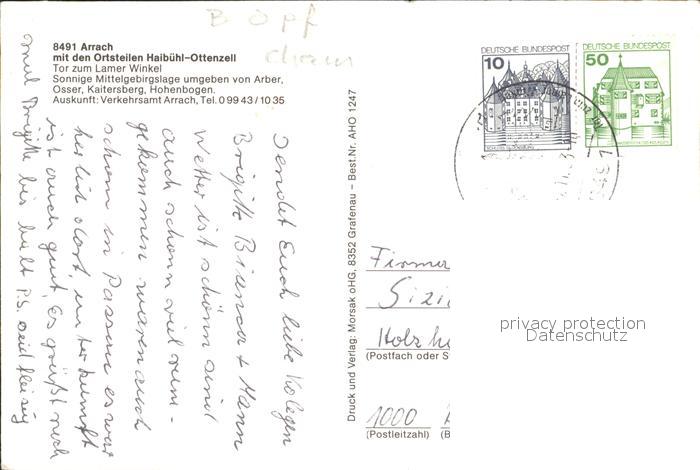 B Opf
cham
8491 Arrach
mit den Ortsteilen Haibühl-Ottenzell
Tor zum Lamer Winkel
Sonnige Mittelgebirgslage umgeben von Arber,
Osser, Kaitersberg, Hohenbogen.
Auskunft: Verkehrsamt Arrach, Tel. 0 99 43 / 10 35
sendet Euch liebe Kolegen
Brigitte Bianca + Mann
Wetter ist schönn sind
auch schonn viel rum-
gekommen waren auch
schonn in Passau es war
herlich dort, unterkunft
ist auch gut, Es grüßt noch
mal Brigitte bis bald P.S. seid fleisig
Druck und Verlag: Morsak oHG, 8352 Grafenau – Best.Nr. AHO 1247
DEUTSCHE BUNDESPOST
10
DEUTSCHE BUNDESPOST
50
Firma
Sizi
Holzh
(Postfach oder S
1000
(Postleitzahl) (B
privacy protection
Datenschutz